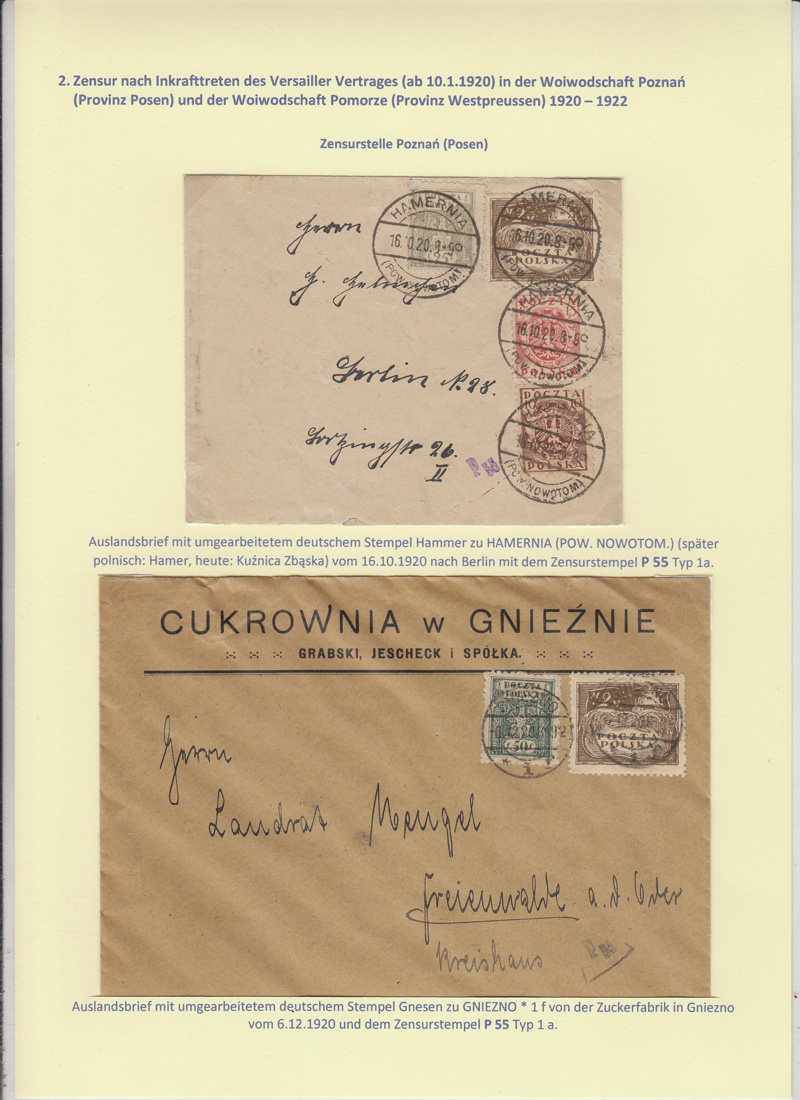 2. Zensur nach Inkrafttreten des Versailler Vertrages (ab 10.1.1920) in der Woiwodschaft Poznań
(Provinz Posen) und der Woiwodschaft Pomorze (Provinz Westpreussen) 1920 – 1922
Zensurstelle Poznań (Posen)
HAMERNIA
16.10.20.8-9
(POW. NOWOTOM.)
HAMERNIA
16.10.20.8-9
POCZTA
POLSKA
Herrn
HAMERNIA
16.10.20.8-9
(POW. NOWOTOM.)
Berlin N 28.
POCZTA
10 10
POLSKA
(POW. NOWOTOM.)
Lortzingstr 26.
II
P 55
Auslandsbrief mit umgearbeitetem deutschem Stempel Hammer zu HAMERNIA (POW. NOWOTOM.) (später
polnisch: Hamer, heute: Kuźnica Zbąska) vom 16.10.1920 nach Berlin mit dem Zensurstempel P 55 Typ 1a.
CUKROWNIA w GNIEŹNIE
GRABSKI, JESCHECK i SPÓŁKA.
POCZTA
POLSKA
50
POCZTA
POLSKA
Herrn
Landrat Mengel
Freienwalde a. d. Oder
Kreishaus
P 55
Auslandsbrief mit umgearbeitetem deutschem Stempel Gnesen zu GNIEZNO * 1 f von der Zuckerfabrik in Gniezno
vom 6.12.1920 und dem Zensurstempel P 55 Typ 1 a.